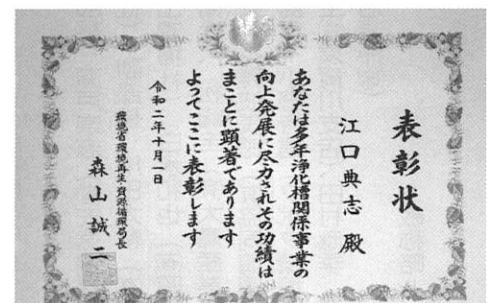 表彰状
江口典志 殿
あなたは多年浄化槽関係事業の
向上発展に尽力されその功績は
まことに顕著であります
よってここに表彰します
令和二年十月一日
環境省環境再生・資源循環局長
森山誠二